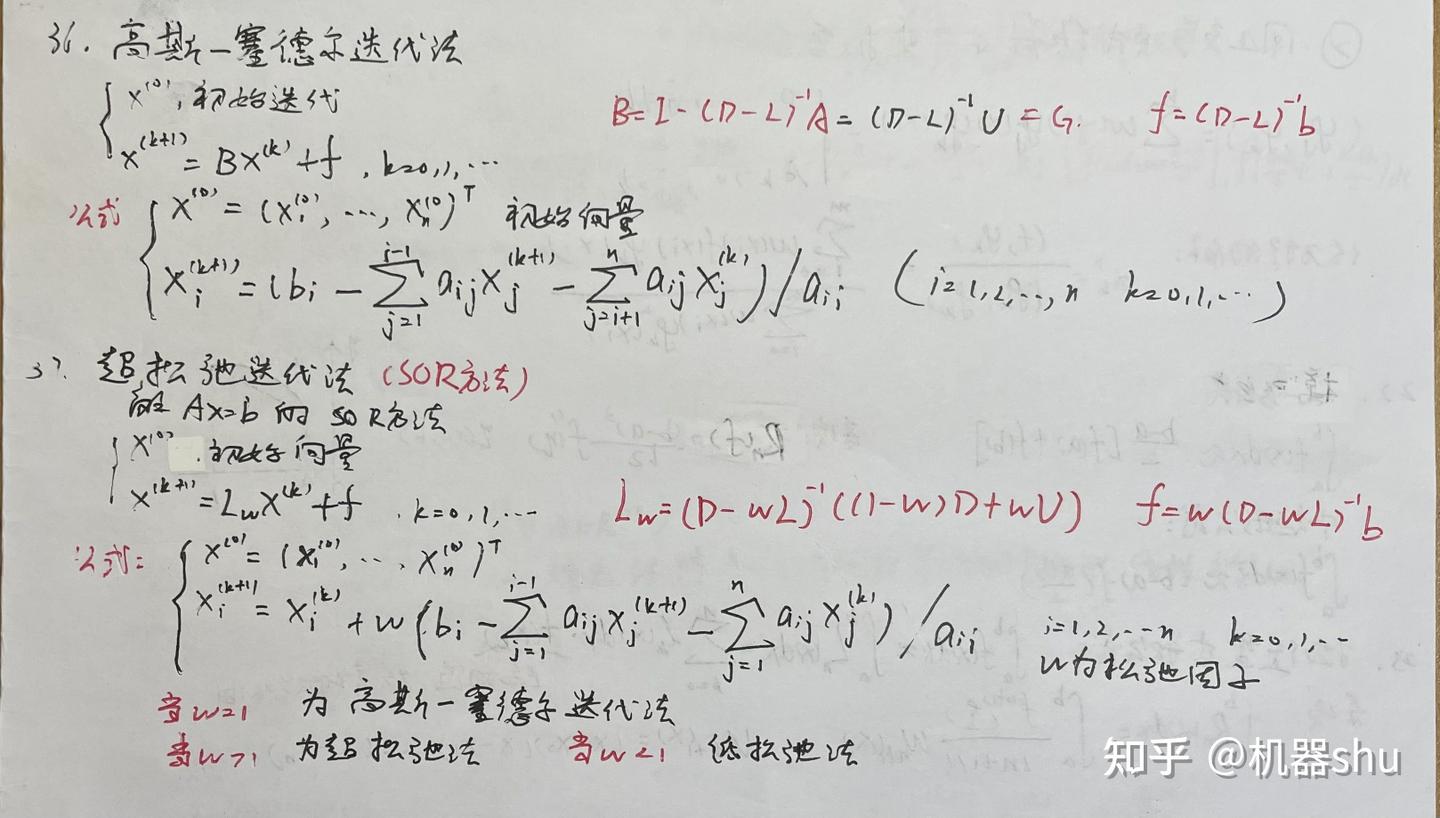 36. 高斯一塞德尔迭代法
x^(0), 初始迭代
x^(k+1) = Bx^(k) + f , k=0,1,⋯
B=I-(D-L)^-1 A = (D-L)^-1 U = G. f=(D-L)^-1 b
公式 x^(0) = (x_1^(0), ⋯, x_n^(0))^T 初始向量
x_i^(k+1) = (b_i - ∑_{j=1}^{i-1} a_ij x_j^(k+1) - ∑_{j=i+1}^{n} a_ij x_j^(k)) / a_ii (i=1,2,⋯,n k=0,1,⋯)
37. 超松弛迭代法 (SOR方法)
解 Ax=b 的 SOR方法
x^(0) . 初始向量
x^(k+1) = L_w x^(k) + f . k=0,1,⋯
L_w=(D-wL)^-1 ((1-w)D+wU) f=w(D-wL)^-1 b
公式: x^(0) = (x_1^(0), ⋯, x_n^(0))^T
x_i^(k+1) = x_i^(k) + w (b_i - ∑_{j=1}^{i-1} a_ij x_j^(k+1) - ∑_{j=1}^{n} a_ij x_j^(k)) / a_ii i=1,2,⋯n k=0,1,⋯
w为松弛因子
当w=1 为高斯一塞德尔迭代法
当w>1 为超松弛法 当w<1 低松弛法
知乎 @机器shu